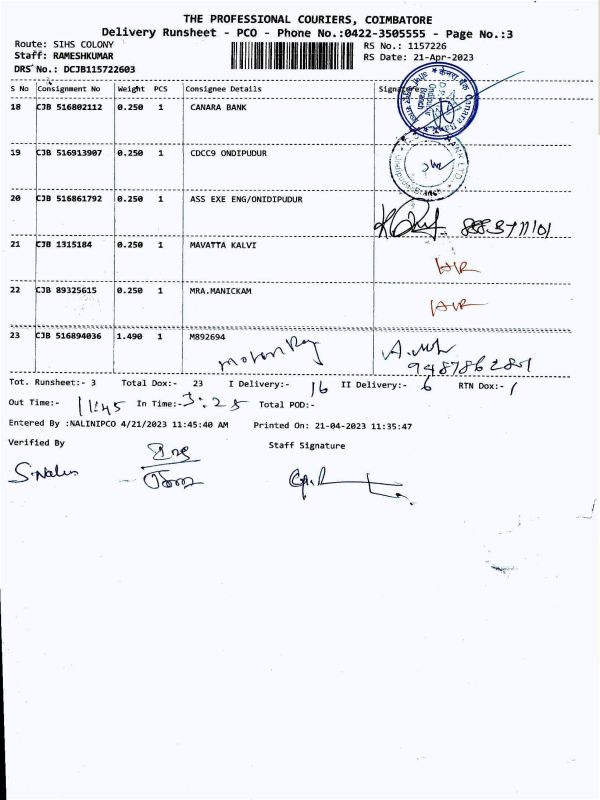 THE PROFESSIONAL COURIERS, COIMBATORE
Delivery Runsheet - PCO - Phone No.:0422-3505555 - Page No.:3
Route: SIHS COLONY RS No.: 1157226
Staff: RAMESHKUMAR RS Date: 21-Apr-2023
DRS No.: DCJB115722603
S No Consignment No Weight PCS Consignee Details Signature
18 CJB 516802112 0.250 1 CANARA BANK
19 CJB 516913907 0.250 1 CDCC9 ONDIPUDUR
20 CJB 516861792 0.250 1 ASS EXE ENG/ONIDIPUDUR
21 CJB 1315184 0.250 1 MAVATTA KALVI
22 CJB 89325615 0.250 1 MRA.MANICKAM
23 CJB 516894036 1.490 1 M892694
Tot. Runsheet:- 3 Total Dox:- 23 I Delivery:- 16 II Delivery:- 6 RTN Dox:- 1
Out Time:- 11:45 In Time:- 3:25 Total POD:-
Entered By :NALINIPCO 4/21/2023 11:45:40 AM Printed On: 21-04-2023 11:35:47
Verified By Staff Signature
S.Nalin